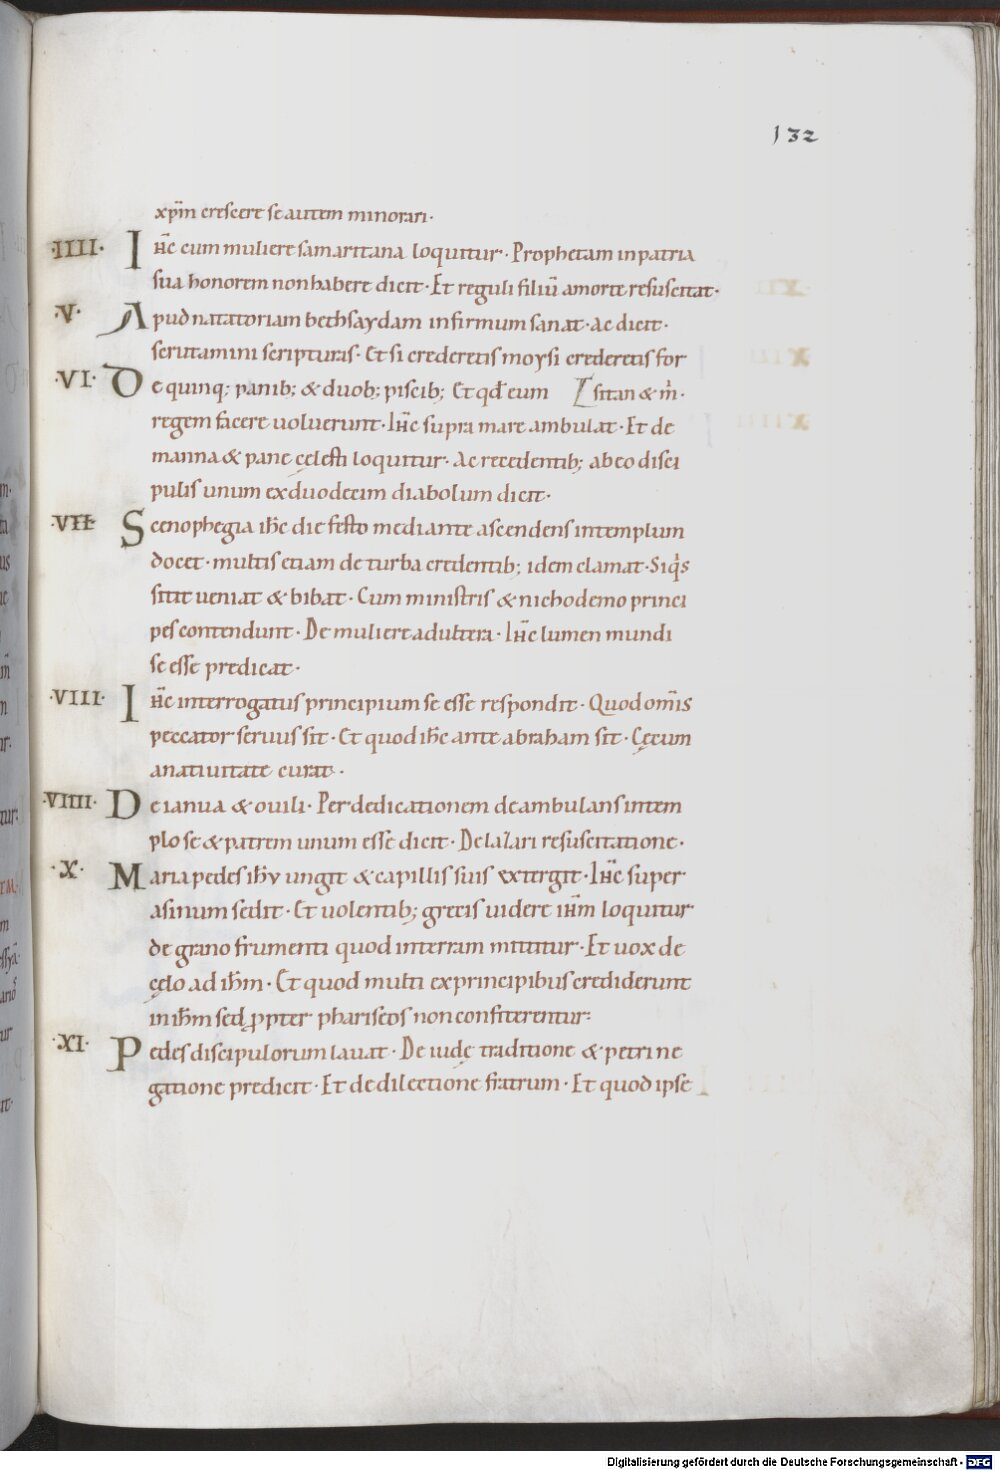 132
xp̄m crescere se autem minorari·
·IIII· Ihc̄ cum muliere samaritana loquitur· Prophetam in patria
sua honorem non habere dicit· Et reguli filiū a morte resuscitat·
·V· Apud natatoriam bethsaydam infirmum sanat· ac dicit·
scrutamini scripturas· Et si crederetis moysi crederetis for
·VI· De quinq; panib; & duob; piscib; Et qđ eum [sitan & m̄·
regem facere uoluerunt· Ihc̄ supra mare ambulat· Et de
manna & pane cęlesti loquitur· Ac recedentib; ab eo disci
pulis unum ex duodecim diabolum dicit·
·VII· Scenophegia ihc̄ die festo mediante ascendens in templum
docet· multis etiam de turba credentib; idem clamat· Siqͥs
sitit ueniat & bibat· Cum ministris & nichodemo princi
pes contendunt· De muliere adultera· Ihc̄ lumen mundi
se esse predicat·
·VIII· Ihc̄ interrogatus principium se esse respondit· Quod om̄is
peccator seruus sit· Et quod ihc̄ ante abraham sit· Cęcum
a natiuitate curat·
·VIIII· De ianua & ouili· Per dedicationem deambulans in tem
plo se & patrem unum esse dicit· De lazari resuscitatione·
·X· Maria pedes ihv̄ ungit & capillis suis extergit· Ihc̄ super
asinum sedit· Et uolentib; grecis uidere ihm̄ loquitur
de grano frumenti quod in terram mittitur· Et uox de
cęlo ad ihm̄· Et quod multi ex principibus crediderunt
in ihm̄ sed ꝓpter phariseos non confiterentur·
·XI· Pedes discipulorum lauat· De iudę traditione & petri ne
gatione predicit· Et de dilectione fratrum· Et quod ipse
Digitalisierung gefördert durch die Deutsche Forschungsgemeinschaft - DFG